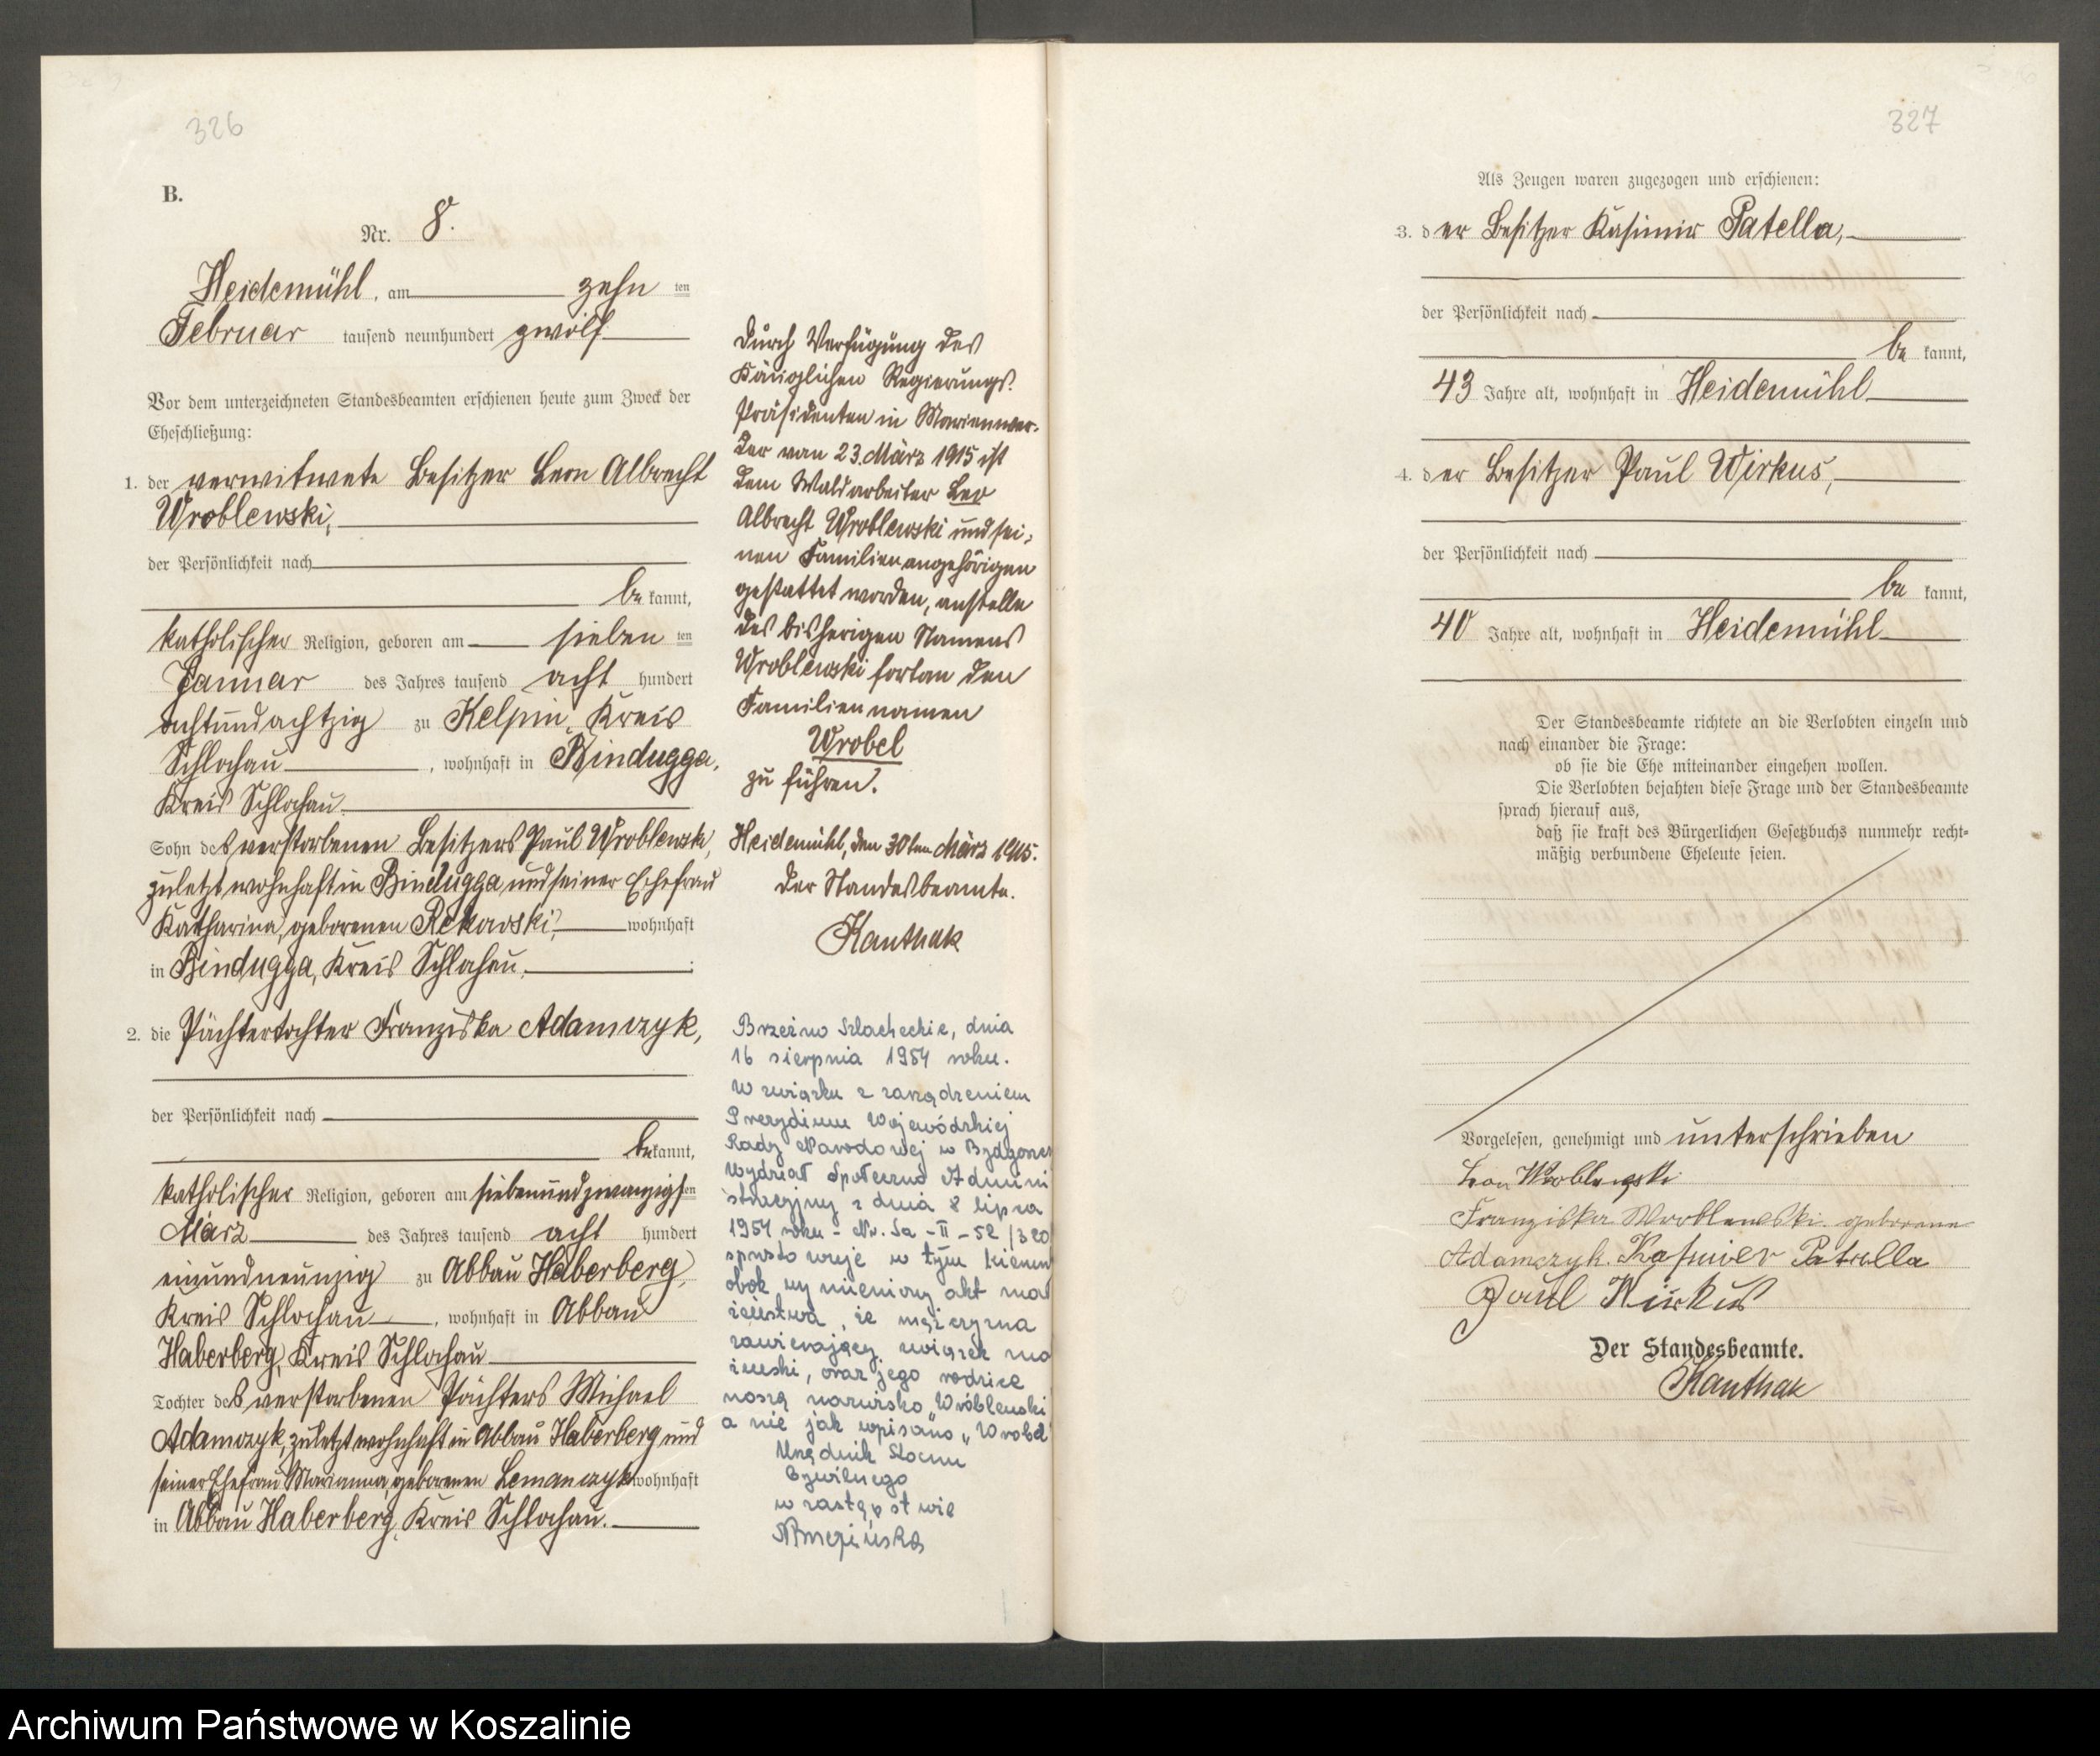 326
B.
Nr. 8.
Heidemühl, am zehn ten
Februar tausend neunhundert zwölf
Vor dem unterzeichneten Standesbeamten erschienen heute zum Zweck der
Eheschließung:
1. der verwitwete Besitzer Leon Albrecht
Wroblewski,
der Persönlichkeit nach
be kannt,
katholischer Religion, geboren am sieben ten
Januar des Jahres tausend acht hundert
achtundachtzig zu Kelpin, Kreis
Schlochau, wohnhaft in Bindugga,
Kreis Schlochau
Sohn des verstorbenen Besitzers Paul Wroblewski,
zuletzt wohnhaft in Bindugga, und seiner Ehefrau
Katharina, geborenen Rekowski, wohnhaft
in Bindugga, Kreis Schlochau.
2. die Pächtertochter Franziska Adamczyk,
der Persönlichkeit nach
bekannt,
katholischer Religion, geboren am siebenundzwanzigsten
März des Jahres tausend acht hundert
einundneunzig zu Abbau Haberberg,
Kreis Schlochau, wohnhaft in Abbau
Haberberg, Kreis Schlochau
Tochter des verstorbenen Pächters Michael
Adamczyk, zuletzt wohnhaft in Abbau Haberberg und
seiner Ehefrau Marianna, geborenen Lemanczyk wohnhaft
in Abbau Haberberg, Kreis Schlochau.
Durch Verfügung des
Königlichen Regierungs-
Präsidenten in Marienwer-
der vom 23. März 1915 ist
dem Waldarbeiter Leo
Albrecht Wroblewski und sei-
nen Familienangehörigen
gestattet worden, anstelle
des bisherigen Namens
Wroblewski fortan den
Familiennamen
Wrobel
zu führen.
Heidemühl, den 30ten März 1915.
Der Standesbeamte.
Kanthak
Brzeźno Szlacheckie, dnia
16 sierpnia 1954 roku.
W związku z zarządzeniem
Prezydium Wojewódzkiej
Rady Narodowej w Bydgoszcz
Wydział Społeczno Admini
stracyjny z dnia 8 lipca
1954 roku - Nr. Sa - II - 52/320
sprostowuje w tym kierun
obok wymieniony akt mał
żeństwa, że mężczyzna
zawierający związek ma
żeński, oraz jego rodzice
noszą nazwisko „Wróblewski"
a nie jak wpisano „Wrobel"
Urzędnik Stanu
Cywilnego
w zastępstwie
327
Als Zeugen waren zugezogen und erschienen:
3. der Besitzer Kasimir Patella,
der Persönlichkeit nach
be kannt,
43 Jahre alt, wohnhaft in Heidemühl
4. der Besitzer Paul Wirkus,
der Persönlichkeit nach
be kannt,
40 Jahre alt, wohnhaft in Heidemühl
Der Standesbeamte richtete an die Verlobten einzeln und
nach einander die Frage:
ob sie die Ehe miteinander eingehen wollen.
Die Verlobten bejahten diese Frage und der Standesbeamte
sprach hierauf aus,
daß sie kraft des Bürgerlichen Gesetzbuchs nunmehr recht-
mäßig verbundene Eheleute seien.
Vorgelesen, genehmigt und unterschrieben
Leon Wroblewski
Franziska Wroblewski geborene
Adamczyk. Kasimier Patella
Paul Wirkus
Der Standesbeamte.
Kanthak
Archiwum Państwowe w Koszalinie